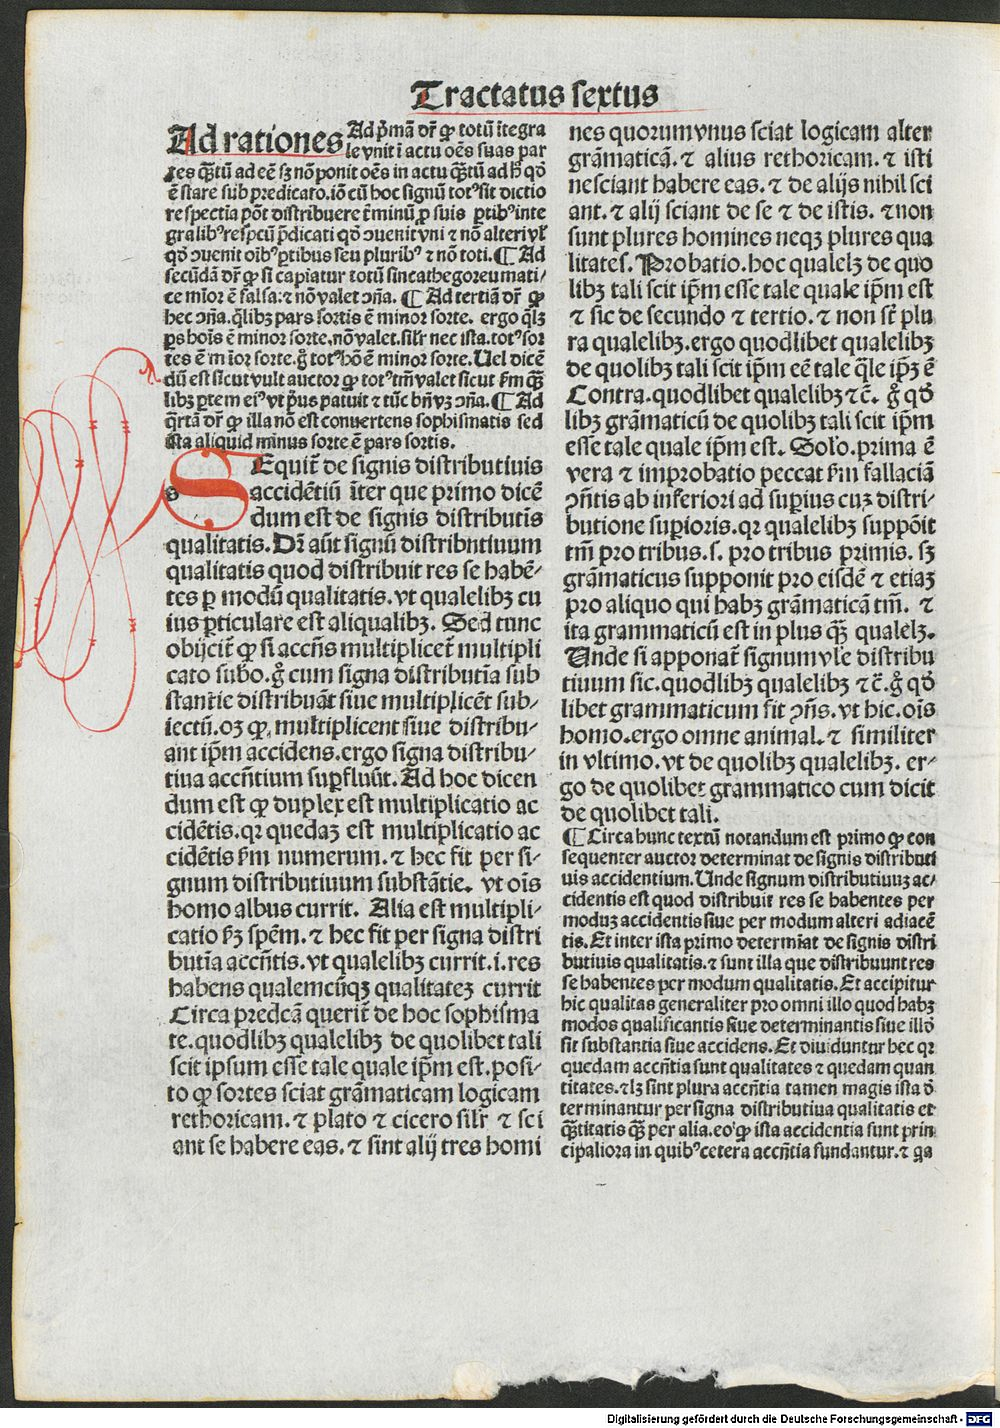 Tractatus sextus
Ad rationes Ad p̄mā dr̄ ꝙ totū ītegra
le vnit ī actu oēs suas par
tes q̄ꝫtū ad eē sꝫ nō ponit oēs in actu q̄ꝫtū ad h̄ qđ
ē stare sub predicato. iō cū hoc signū totꝰ sit dictio
respectiua pōt distribuere t̄minū ꝓ suis ꝑtibꝰ inte
gralibꝰ respcū p̄dicati qđ ↄuenit vni ⁊ nō alteri vł
qđ ↄuenit oībꝰ ꝑtibus seu pluribꝰ ⁊ nō toti. ¶ Ad
secūdam dr̄ ꝙ si capiatur totū sincathegoreumati⸗
ce mīor ē falsa: ⁊ nō valet ↄña. ¶ Ad tertiā dr̄ ꝙ
hec ↄña. q̄libꝫ pars sortis ē minor sorte. ergo q̄lꝫ
ꝑs hoīs ē minor sorte. nō valet. silr̄ nec ista. totꝰ sor
tes ē mīor sorte. g̊ totꝰ hō ē minor sorte. Uel dicē
dū est sicut vult auctor ꝙ totꝰ tm̄ valet sicut s̄m q̄ꝫ
libꝫ ꝑtem eiꝰ vt pꝰus patuit ⁊ tūc bn̄ vꝫ ↄña. ¶ Ad
q̄rtā dr̄ ꝙ illa nō est conuertens sophismatis sed
ista aliquid minus sorte ē pars sortis.
SEquit̄ de signis distributiuis
accidētiū īter que primo dicē
dum est de signis distributīs
qualitatis. Dr̄ aūt signū distributiuum
qualitatis quod distribuit res se habē⸗
tes ꝑ modū qualitatis. vt qualelibꝫ cu
ius ꝑticulare est aliqualibꝫ. Sed tunc
obijcit̄ ꝙ si accn̄s multiplicet̄ multipli
cato subo. g̊ cum signa distributīa sub
stantie distribuāt siue multiplicēt sub⸗
iectū. oꝫ ꝙ multiplicent siue distribu⸗
ant ip̄m accidens. ergo signa distribu⸗
tiua accn̄tium suꝑfluūt. Ad hoc dicen
dum est ꝙ duplex est multiplicatio ac
cidētis. qr̄ quedaꝫ est multiplicatio ac
cidētis s̄m numerum. ⁊ hec fit per si⸗
gnum distributiuum substātie. vt oīs
homo albus currit. Alia est multipli⸗
catio s̄ꝫ spēm. ⁊ hec fit per signa distri
butīa accn̄tis. vt qualelibꝫ currit .i. res
habens qualemcūqꝫ qualitateꝫ currit
Circa predcām querit̄ de hoc sophisma
te. quodlibꝫ qualelibꝫ de quolibet tali
scit ipsum esse tale quale ip̄m est. posi⸗
to ꝙ sortes sciat grāmaticam logicam
rethoricam. ⁊ plato ⁊ cicero silr̄ ⁊ sci
ant se habere eas. ⁊ sint alij tres homi
nes quorum vnus sciat logicam alter
grāmaticā. ⁊ alius rethoricam. ⁊ isti
nesciant habere eas. ⁊ de alijs nihil sci
ant. ⁊ alij sciant de se ⁊ de istis. ⁊ non
sunt plures homines neqꝫ plures qua
litates. Probatio. hoc qualelꝫ de quo
libꝫ tali scit ip̄m esse tale quale ip̄m est
⁊ sic de secundo ⁊ tertio. ⁊ non sūt plu
ra qualelibꝫ. ergo quodlibet qualelibꝫ
de quolibꝫ tali scit ip̄m eē tale q̄le ip̄ꝫ ē
Contra. quodlibet qualelibꝫ ⁊c̄. g̊ qđ
libꝫ grāmaticū de quolibꝫ tali scit ip̄m
esse tale quale ip̄m est. Solo. prima ē
vera ⁊ improbatio peccat s̄m fallaciā
ↄn̄tis ab inferiori ad suꝑius cuꝫ distri⸗
butione suꝑioris. qr̄ qualelibꝫ suppōit
tm̄ pro tribus .s. pro tribus primis. sꝫ
grāmaticus supponit pro eisdē ⁊ etiaꝫ
pro aliquo qui habꝫ grāmaticā tm̄. ⁊
ita grammaticū est in plus q̄ꝫ qualelꝫ.
Unde si apponat̄ signum vłe distribu
tiuum sic. quodlibꝫ qualelibꝫ ⁊c̄. g̊ qđ
libet grammaticum fit ↄn̄s. vt hic. oīs
homo. ergo omne animal. ⁊ similiter
in vltimo. vt de quolibꝫ qualelibꝫ. er⸗
go de quolibet grammatico cum dicit
de quolibet tali.
¶ Circa hunc textū notandum est primo ꝙ con
sequenter auctor determinat de signis distributi
uis accidentium. Unde signum distributiuuꝫ ac⸗
cidentis est quod distribuit res se habentes per
moduꝫ accidentis siue per modum alteri adiacē
tis. Et inter ista primo determīat de signis distri
butiuis qualitatis. ⁊ sunt illa que distribuunt res
se habentes per modum qualitatis. Et accipitur
hic qualitas generaliter pro omni illo quod habꝫ
modos qualificantis siue determinantis siue illō
sit substantia siue accidens. Et diuiduntur hec qr̄
quedam accn̄tia sunt qualitates ⁊ quedam quan
titates. ⁊ lꝫ sint plura accn̄tia tamen magis ista d̄
terminantur per signa distributiua qualitatis et
q̄ꝫtitatis q̄ꝫ per alia. eoꝙ ista accidentia sunt prin
cipaliora in quibꝰ cetera accn̄tia fundantur. ⁊ ga
Digitalisierung gefördert durch die Deutsche Forschungsgemeinschaft - DFG